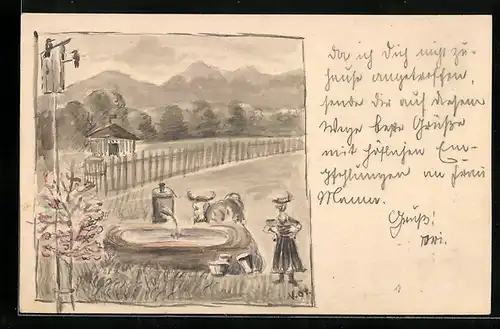 Da ich Dich nicht zu-
hause angetroffen,
sende Dir auf diesem
Wege beste Grüße
mit höflichen Em-
pfehlungen an Frau
Mama.
Gruß!